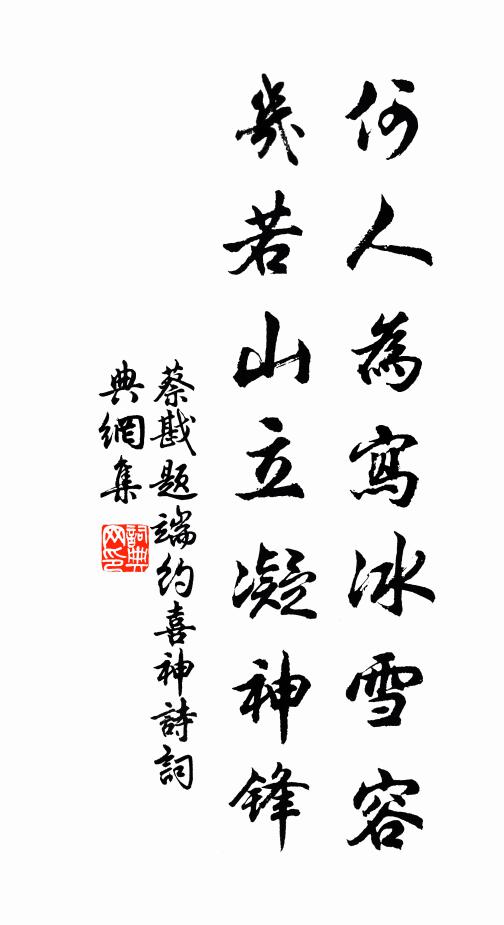 何人為寫冰雪容
幾若山立凝神鋒
蔡戡題端約喜神詩詞
典網集
詞典
网印